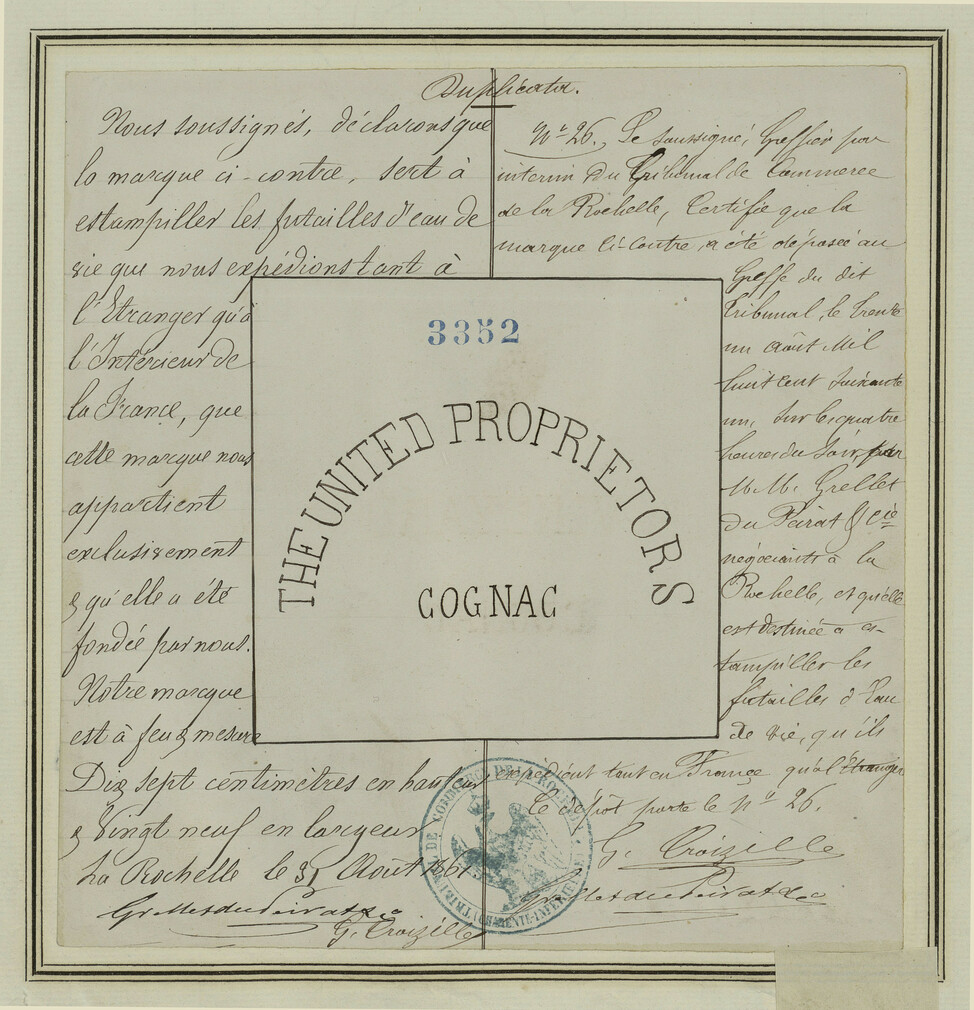 Duplicata.
Nous soussignés, déclarons que
la marque ci-contre, sert à
estampiller les futailles d'eau de
vie que nous expédions tant à
l'Etranger qu'à
l'Intérieur de
la France, que
cette marque nous
appartient
exclusivement
& qu'elle a été
fondée par nous.
Notre marque
est à feu & mesure
Dix sept centimètres en hauteur
& Vingt neuf en largeur
La Rochelle le 31 Août 1861
Grellet du Peirat & Cie
G. Croizille
3352
THE UNITED PROPRIETORS
COGNAC
No 26. Le soussigné, Greffier par
interim du Tribunal de Commerce
de la Rochelle, Certifie que la
marque Ci-Contre, a été déposée au
Greffe du dit
Tribunal, le trente
un Août Mil
huit cent Soixante
un, Sur les quatre
heures du Soir, par
M.M. Grellet
du Peirat & Cie
négociants à la
Rochelle, et qu'elle
est destinée à es-
tampiller les
futailles d'Eau
de vie, qu'ils
expédient tant en France qu'al'Etranger
Le dépôt porte le No 26.
G. Croizille
Grellet du Peirat & Cie
DE COMMERCE DE LA ROCHELLE
CHARENTE-INFER